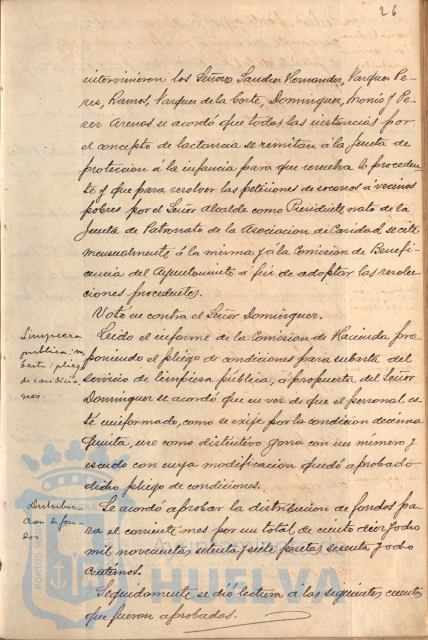 26
intervinieron los Señores Sanchez Hernandez, Vazquez Pe-
rez, Ramos, Vazquez de la Corte, Dominguez, Monis y Pe-
rez Arenas se acordó que todas las instancias por
el concepto de lactancia se remitan á la Junta de
protección á la infancia para que resuelva lo proceden-
te y que para resolver las peticiones de socorros á vecinos
pobres por el Señor Alcalde como Presidente nato de la
Junta de Patronato de la Asociacion de Caridad, se cite
mensualmente á la misma y á la Comision de Benefi-
cencia del Ayuntamiento á fin de adoptar las resolu-
ciones procedentes.
Votó en contra el Señor Dominguez.
Limpieza
pública: su-
basta: pliego
de condicio-
nes.
Leido el informe de la Comision de Hacienda pro-
poniendo el pliego de condiciones para subasta del
servicio de limpieza pública, á propuesta del Señor
Dominguez se acordó que en vez de que el personal es-
té uniformado, como se exije por la condicion décima
quinta, use como distintivo gorra con un número y
escudo con cuya modificacion quedó aprobado
dicho pliego de condiciones.
Distribu-
cion de fon-
dos.
Se acordó aprobar la distribucion de fondos pa-
ra el corriente mes por un total de ciento diez y ocho
mil novecientas setenta y siete pesetas sesenta y ocho
céntimos.
Seguidamente se dió lectura á las siguientes cuentas
que fueron aprobadas.
Ayuntamiento de
HUELVA